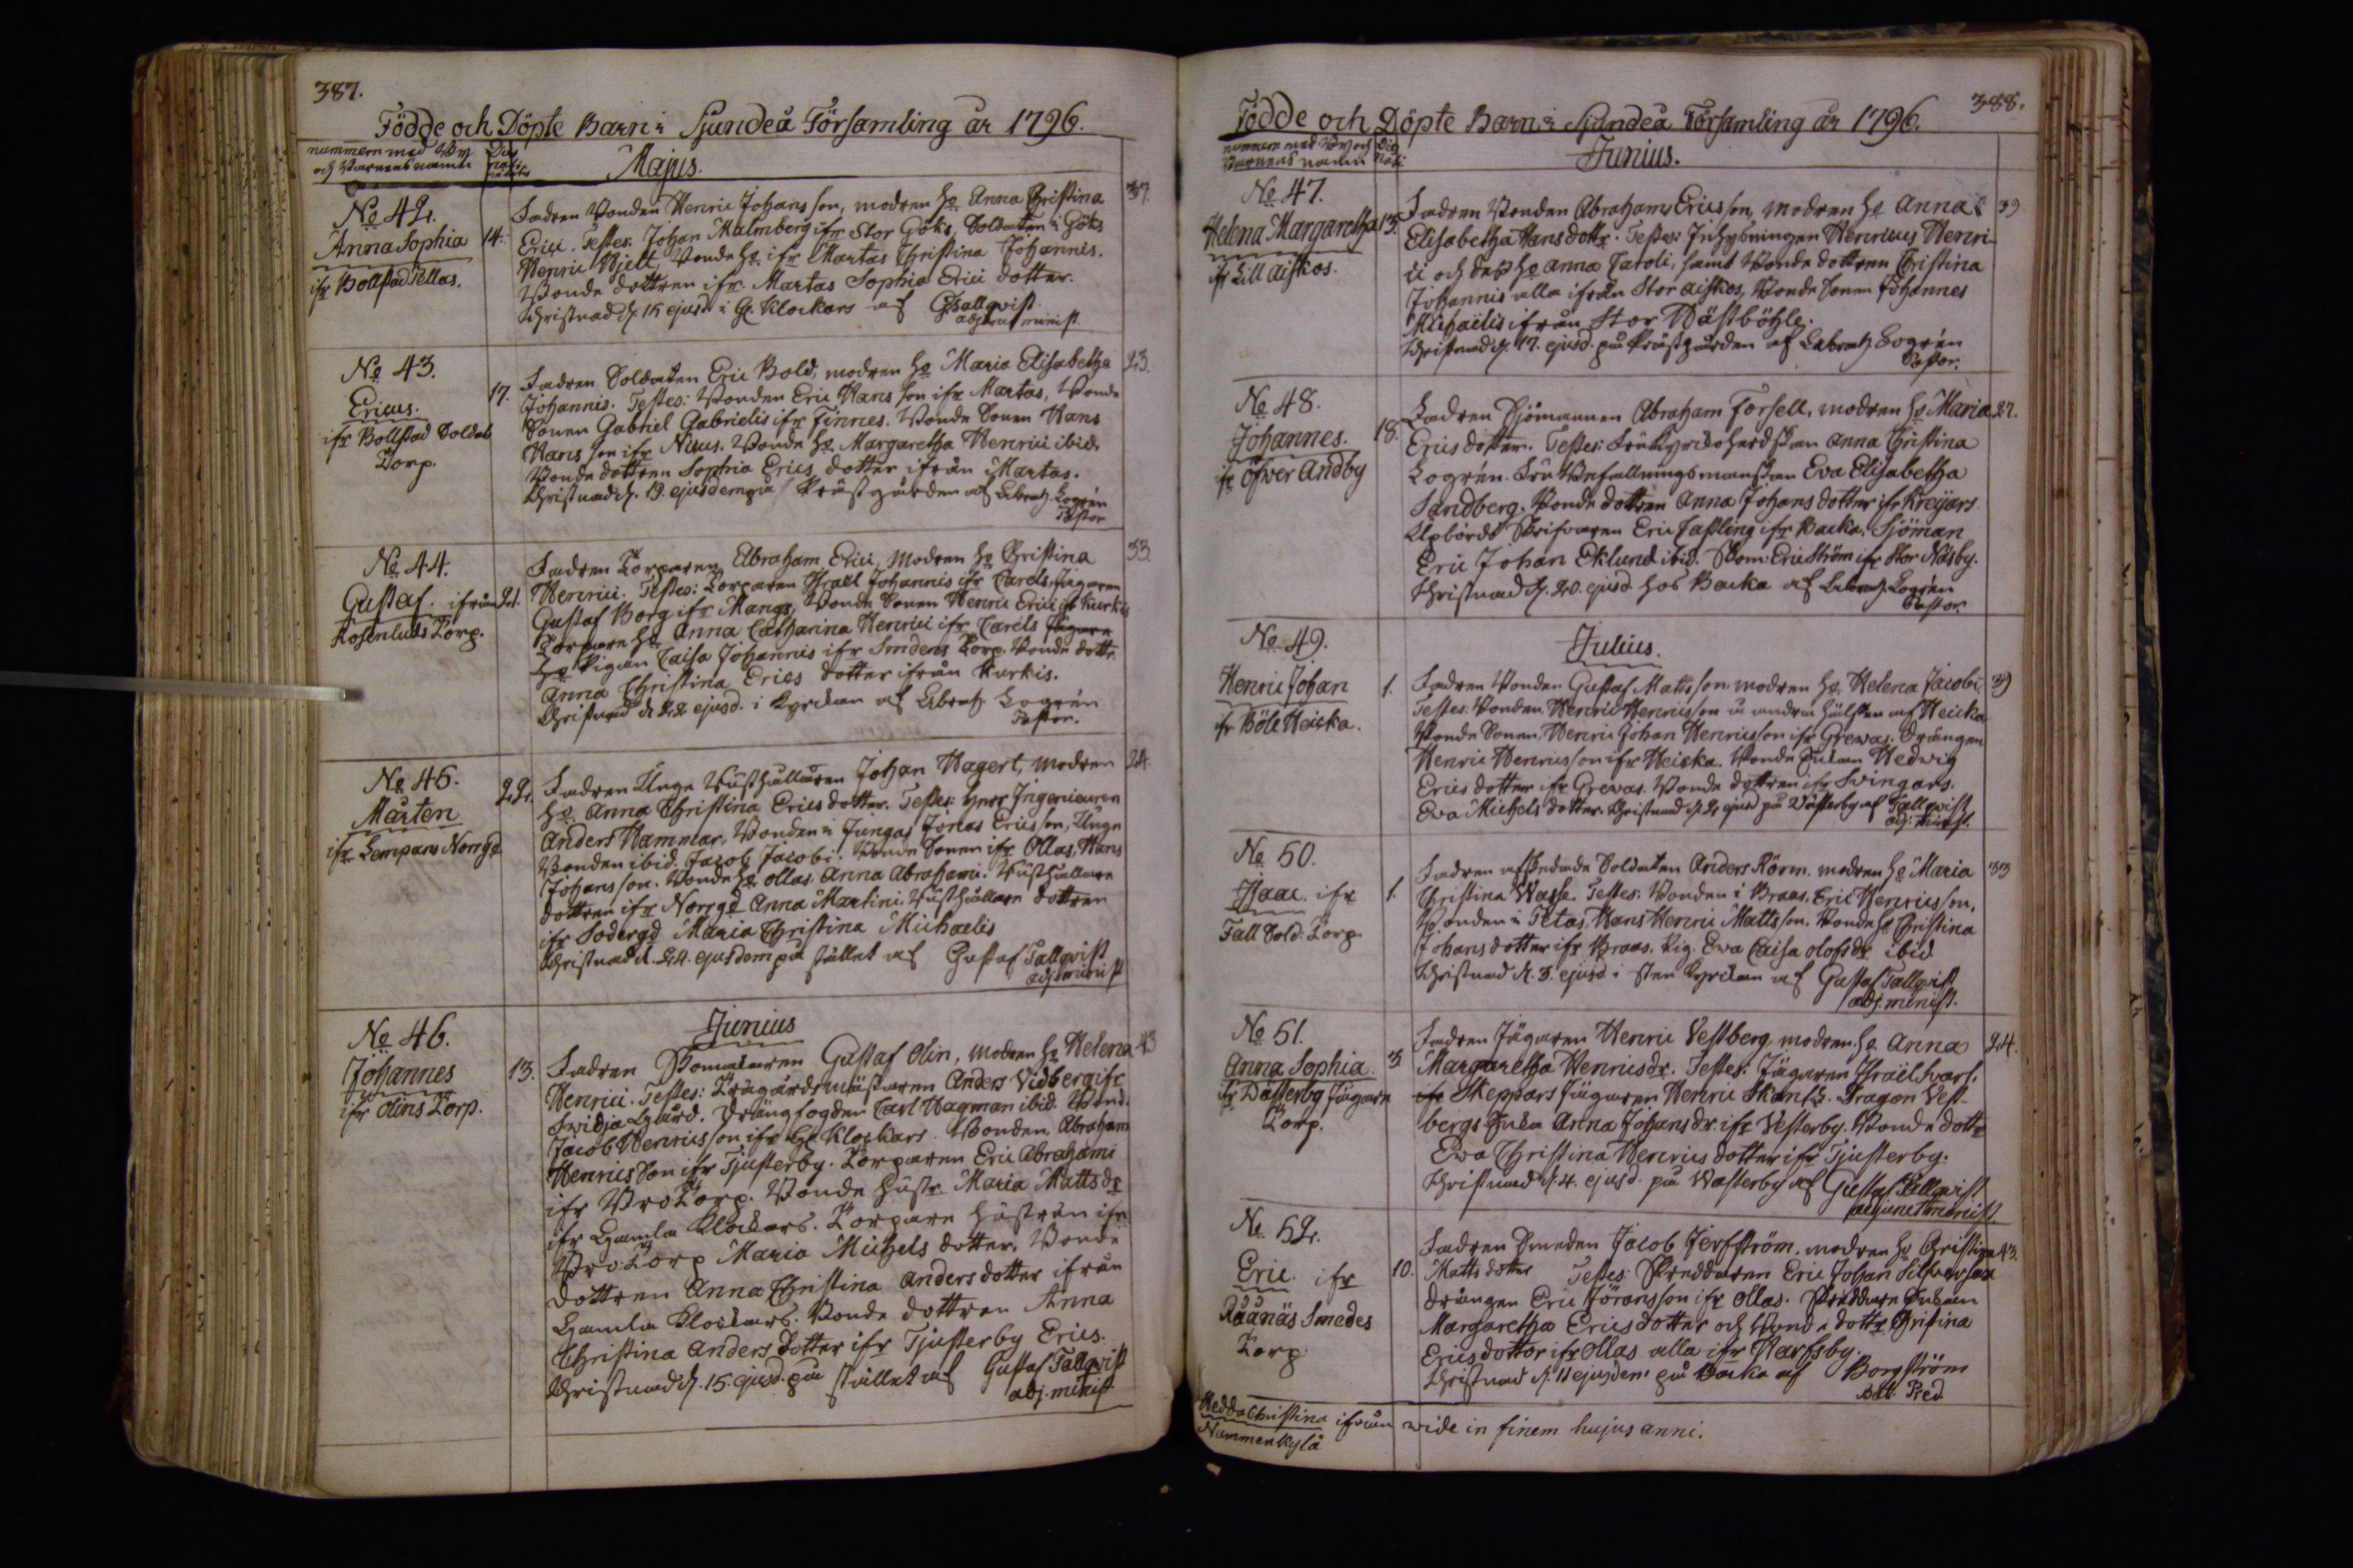 387.
Födde och Döpte Barn i Sjundeå Församling år 1796.
nummern med By och Barnens namn
Dies nativitatis
Majus.
No 42.
Anna Sophia
ifr Bollstad Tellas.
14.
Fadren Bonden Henric Johansson, modren h. Anna Christina
Erici. Testes: Johan Malmberg ifr Stor Göks, Soldaten i Göks
Henric Hjelt, Bonde h. ifr Martas Christina Johannis.
Bonde dottren ifr. Martas Sophia Erici dotter.
Christnad d. 15 ejusd. i Gl. Klockars af G Tallqvist
adj. minist.
37.
No 43.
Ericus.
ifr Bollstad Soldat
Torp.
17.
Fadren Soldaten Eric Bold, modren h. Maria Elisabetha
Johannis. Testes: Bonden Eric Hans son ifr Martas, Bonde
Sonen Gabriel Gabrielis ifr Finnes. Bonde Sonen Hans
Hans son ifr Nius. Bonde h. Margaretha Henrici ibid.
Bonde dottren Sophia Erics dotter ifrån Martas.
Christnad d. 19. ejusdem på Prästgården af Abrah. Logrén
Pastor
23.
No 44.
Gustaf. ifrån
Rosenlunds Torp.
21.
Fadren Torparen Abraham Erici, modren h. Christina
Henrici. Testes: Torparen Israel Johannis ifr Carels, Jägaren
Gustaf Borg ifr Mangs, Bonde Sonen Henric Erici ifr Kurkis
Torpare h. Anna Catharina Henrici ifr Carels
Pigan Caisa Johannis ifr Smedens Torp. Bonde dottr.
Anna Christina Erics dotter ifrån Kurkis.
Christnad d. 22 ejusd. i Kyrckan af Abrah. Logrén
Pastor.
33.
No 45.
Mårten
ifr. Lempans Norrgd
22.
Fadren Unge Rusthållaren Johan Hagert, modren
h. Anna Christina Erics dotter. Testes: Herr Ingenieuren
Anders Hammar, Bonden i Jungas Jonas Ericsson, Unge
Bonden ibid. Jacob Jacobi. Bonde Sonen ifr Ollas, Hans
Johansson. Bonde h. Ollas Anna Abrahami. Rusthållare
dottren ifr Norrgd Anna Martini. Rusthållare dottren
ifr Södergd Maria Christina Michaelis
Christnad d. 24. ejusdem på stället af Gustaf Tallqvist
adj. minist
24
Junius
No 46.
Johannes
ifr Olins Torp.
13.
Fadren Gustaf Olin, modren h. Helena
Henrici. Testes: Trägårdsmästaren Anders Vidberg ifr
Svidja Gård. Drängfogden Carl Hagman ibid. Bond.
Jacob Henricsson ifr Gl Klockars. Bonden Abraham
Henrics Son ifr Tjusterby. Torparen Eric Abrahami
ifr Bro Torp. Bonde hustr. Maria Matts dr
ifr Gamla Klockars. Torpare hustrun ifr
Bro Torp Maria Michels dotter. Bonde
dottren Anna Christina Anders dotter ifrån
Gamla Klockars. Bonde dottren Anna
Christina Anders dotter ifr Tjusterby Erics.
Christnad d. 15. ejusd. på stället af Gustaf Tallqvist
adj. minist
43
388.
Födde och Döpte Barn i Sjundeå Församling år 1796.
nummern med By och Barnens namn
Dies nati
Junius.
No 47.
Helena Margaretha
ifr Lill Aiskos.
13.
Fadren Bonden Abraham Ericsson, modren h. Anna
Elisabetha Hans dottr. Testes: Inhysningen Henricus Henri-
ci och dess h. Anna Caroli, samt Bonde dottren Christina
Johannis alla ifrån Stor Aiskos, Bonde Sonen Johannes
Michaëlis ifrån Stor Wästböhle.
Christnad d. 17. ejusd. på Prästgården af Abrah. Logrén
Pastor.
39
No 48.
Johannes.
ifr Öfver Andby
18.
Fadren Sjömannen Abraham Forsell, modren h. Maria
Erics dotter. Testes: Fru Kyrckoherdskan Anna Christina
Logrén. Fru Befallningsmanskan Eva Elisabetha
Sandberg. Bonde dottren Anna Johans dotter ifr Kreijars
Upbörds Skrifvaren Eric Cassling ifr Backa. Sjöman
Eric Johan Eklund ibid. Skom: Eric Ström ifr Stor Näsby.
Christnad d. 20. ejusd. hos Backa af Abrah. Logrén
Pastor.
27.
Julius.
No 49.
Henric Johan
ifr Böle Heicka.
1.
Fadren Bonden Gustaf Mattsson modren h. Helena Jacobi,
Testes: Bonden Henric Henricsson å andra hälften af Heicka
Bonde Sonen Henric Johan Henricsson ifr Grewas. Drängen
Henric Henricsson ifr Heicka. Bonde Enkan Hedwig
Erics dotter ifr Grewas. Bonde dottren ifr Svingars.
Eva Michels dotter. Christnad d. 2 ejusd på Wästerby af Tallqvist
adj: minist.
39
No 50.
Isaac. ifr
Fall Sold. Torp.
1.
Fadren afskedade Soldaten Anders Rörm. modren h. Maria
Christina Wasse. Testes: Bonden i Braas, Eric Henricsson,
Bonden i Petas, Hans Henric Mattsson. Bonde h. Christina
Johans dotter ifr Braas. Pig. Eva Caisa Olofs dr. ibid
Christnad d. 3. ejusd i Sten Kyrckan af Gustaf Tallqvist
adj. minist.
33
No 51.
Anna Sophia.
ifr Wästerby Jägare
Torp.
3
Fadren Jägaren Henric Vestberg, modren h. Anna
Margaretha Henricsdr. Testes: Jägaren Israel
ifr Skeppars Jägaren Henric Skants. Dragon Vest-
bergs Enka Anna Johansdr. ifr Vesterby. Bonde dottr
Eva Christina Henrics dotter ifr Tjusterby.
Christnad d. 4. ejusd. på Wästerby af Gustaf Tallqvist
adjunct minist.
24.
No 52.
Eric. ifr
Råånäs Smedes
Torp.
10.
Fadren Smeden Jacob Jerfström. modren h. Christina
Matts dotter Testes: Skreddaren Eric Johan
drängen Eric Göransson ifr Ollas. Skreddare Enkan
Margaretha Erics dotter och Bonde dottr Christina
Ericsdotter ifr Ollas alla ifr Harfsby.
Christnad d. 11 ejusdem på Backa af Borgström
Bat. Pred.
43.
Hedda Christina ifrån wide in finem hujus anni.
Nummenkylä